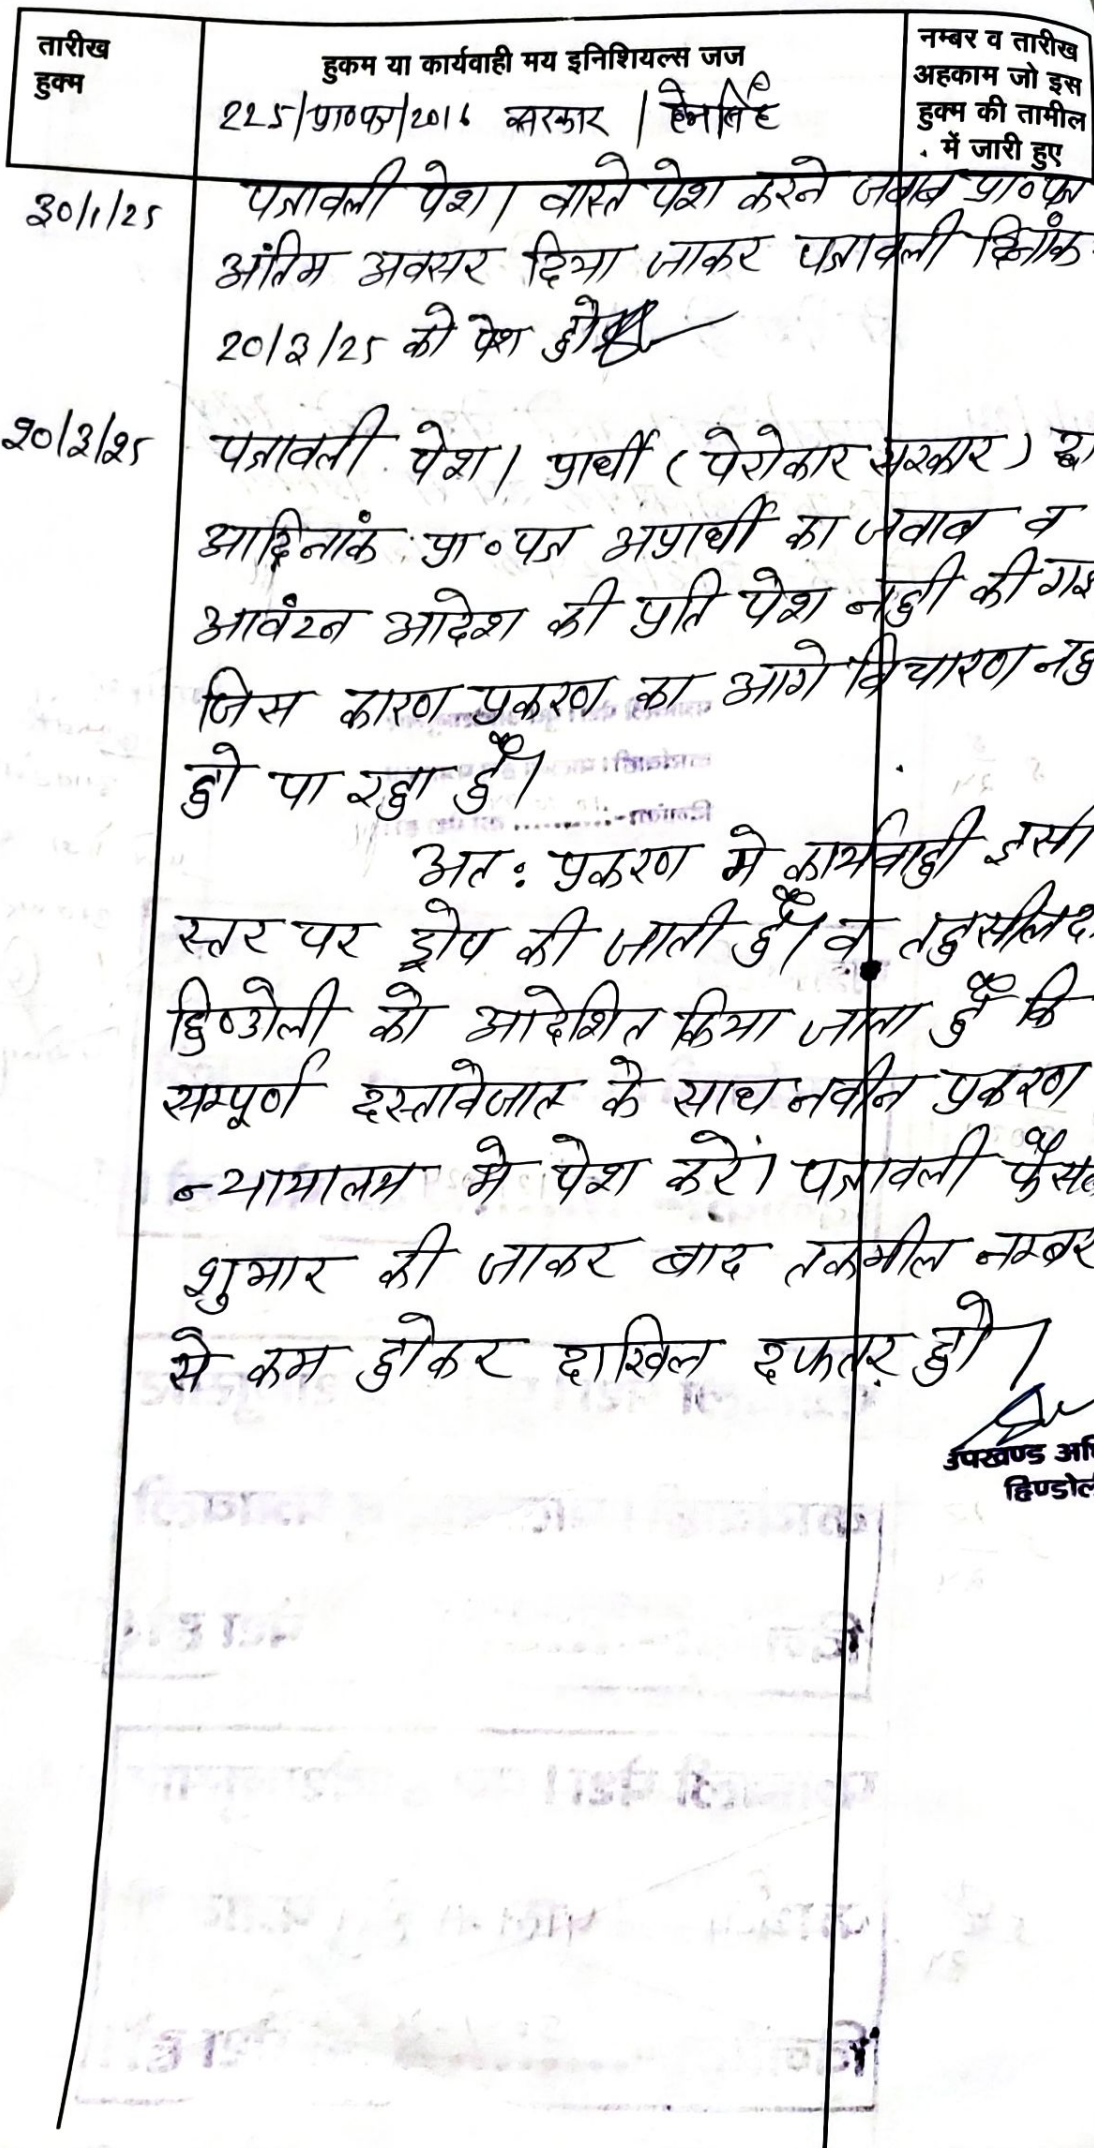 तारीख
हुक्म
हुकम या कार्यवाही मय इनिशियल्स जज
नम्बर व तारीख
अहकाम जो इस
हुक्म की तामील
में जारी हुए
225/प्रा०पत्र/2016 सरकार /
30/1/25 पत्रावली पेश। वास्ते पेश करने जवाब प्रा०पत्र
अंतिम अवसर दिया जाकर पत्रावली दिनांक
20/3/25 को पेश हो
20/3/25 पत्रावली पेश। प्रार्थी (पेरोकार सरकार) द्वा
आदिनांक प्रा०पत्र अप्रार्थी का जवाब व
आवंटन आदेश की प्रति पेश नही की गई
जिस कारण प्रकरण का आगे विचारण नह
हो पा रहा हैं।
अतः प्रकरण मे कार्यवाही इसी
स्तर पर ड्रोप की जाती हैं। व तहसीलद
हिण्डोली को आदेशित किया जाता हैं कि
सम्पूर्ण दस्तावेजात के साथ नवीन प्रकरण
न्यायालय मे पेश करें। पत्रावली फैसल
शुमार की जाकर बाद तकमील नम्बर
से कम होकर दाखिल दफतर हो।
उपखण्ड अधि
हिण्डोली